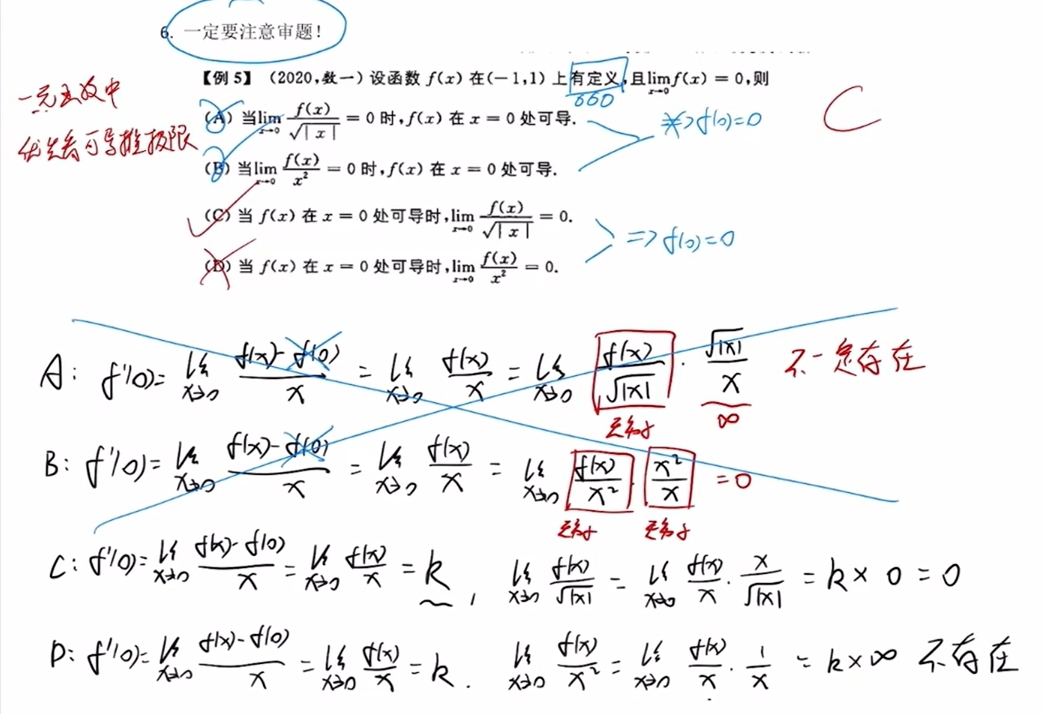 6. 一定要注意审题!
【例 5】(2020,数一)设函数 f(x) 在(−1,1)上有定义,且lim_{x→0} f(x) = 0,则
660
(A) 当lim_{x→0} f(x)/√|x| = 0 时,f(x) 在 x = 0 处可导.
(B) 当lim_{x→0} f(x)/x² = 0 时,f(x) 在 x = 0 处可导.
(C) 当 f(x) 在 x = 0 处可导时,lim_{x→0} f(x)/√|x| = 0.
(D) 当 f(x) 在 x = 0 处可导时,lim_{x→0} f(x)/x² = 0.
一元函数中
优先看可导推极限
≠> f(0)=0
=> f(0)=0
C
A: f'(0)= lim_{x→0} (f(x)-f(0))/x = lim_{x→0} f(x)/x = lim_{x→0} f(x)/√|x| · √|x|/x 不一定存在
无穷小 ∞
B: f'(0)= lim_{x→0} (f(x)-f(0))/x = lim_{x→0} f(x)/x = lim_{x→0} f(x)/x² · x²/x = 0
无穷小 无穷小
C: f'(0)= lim_{x→0} (f(x)-f(0))/x = lim_{x→0} f(x)/x = k, lim_{x→0} f(x)/√|x| = lim_{x→0} f(x)/x · x/√|x| = k × 0 = 0
D: f'(0)= lim_{x→0} (f(x)-f(0))/x = lim_{x→0} f(x)/x = k. lim_{x→0} f(x)/x² = lim_{x→0} f(x)/x · 1/x = k×∞ 不存在